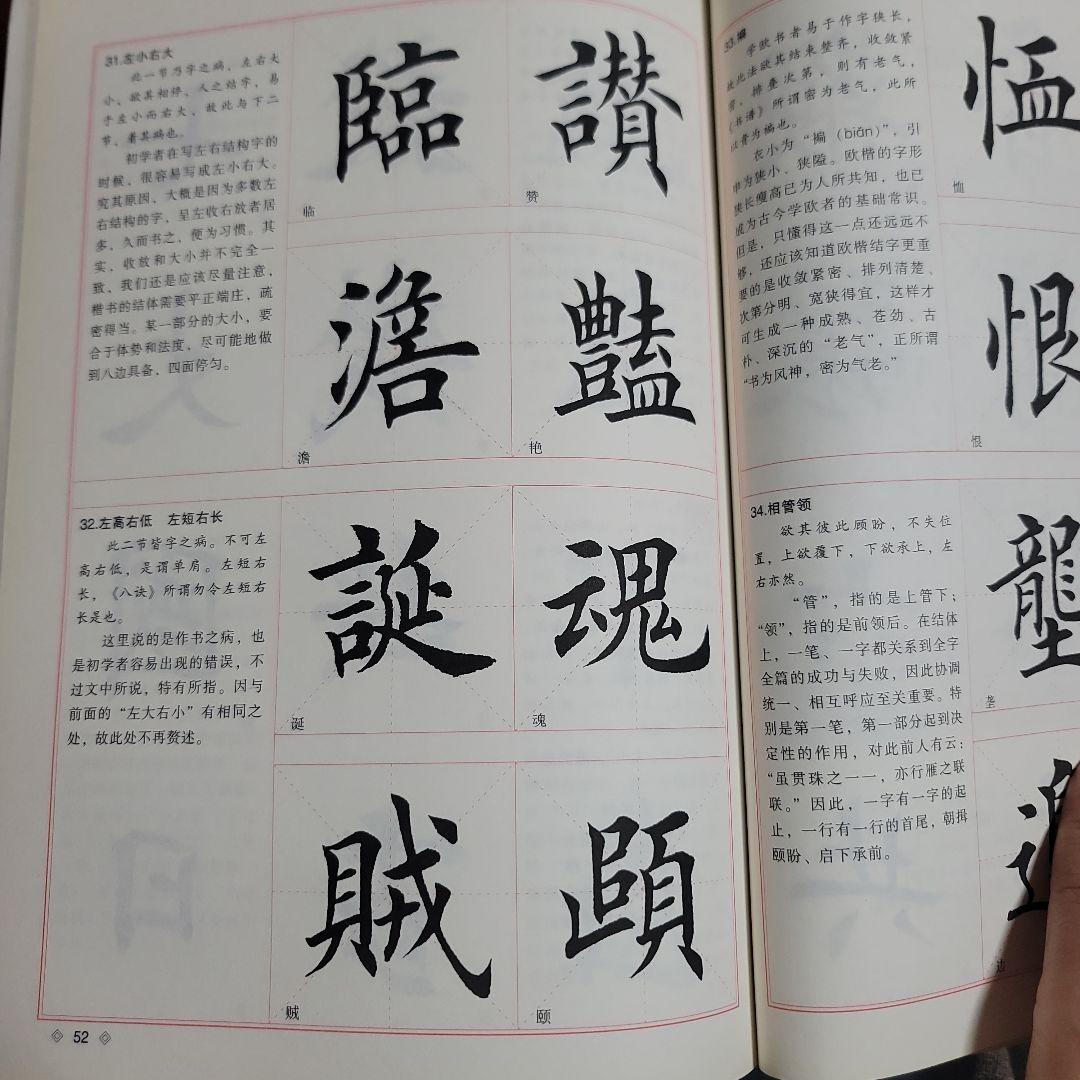 31.左小右大
此一节乃字之病,左右大
小,欲其相停,人之结字,易
于左小而右大,故此与下二
节,著其病也。
初学者在写左右结构字的
时候,很容易写成左小右大。
究其原因,大概是因为多数左
右结构的字,呈左收右放者居
多,久而书之,便为习惯。其
实,收放和大小并不完全一
致,我们还是应该尽量注意,
楷书的结体需要平正端庄,疏
密得当。某一部分的大小,要
合于体势和法度,尽可能地做
到八边具备,四面停匀。
臨
临
讃
赞
澹
澹
豔
艳
32.左高右低 左短右长
此二节皆字之病。不可左
高右低,是谓单肩。左短右
长,《八诀》所谓勿令左短右
长是也。
这里说的是作书之病,也
是初学者容易出现的错误,不
过文中所说,特有所指。因与
前面的“左大右小”有相同之
处,故此处不再赘述。
誕
诞
魂
魂
賊
贼
頤
颐
52
33.褊
学欧书者易于作字狭长,
故此法欲其结束整齐,收敛紧
密,排叠次第,则有老气,
《书谱》所谓密为老气,此所
以贵为褊也。
衣小为“褊(biǎn)”,引
申为狭小、狭隘。欧楷的字形
狭长瘦高已为人所共知,也已
成为古今学欧者的基础常识。
但是,只懂得这一点还远远不
够,还应该知道欧楷结字更重
要的是收敛紧密、排列清楚、
次第分明、宽狭得宜,这样才
可生成一种成熟、苍劲、古
朴、深沉的“老气”,正所谓
“书为风神,密为气老。”
恤
恨
恨
34.相管领
欲其彼此顾盼,不失位
置,上欲覆下,下欲承上,左
右亦然。
“管”,指的是上管下;
“领”,指的是前领后。在结体
上,一笔、一字都关系到全字
全篇的成功与失败,因此协调
统一、相互呼应至关重要。特
别是第一笔,第一部分起到决
定性的作用,对此前人有云:
“虽贯珠之一一,亦行雁之联
联。”因此,一字有一字的起
止,一行有一行的首尾,朝揖
颐盼、启下承前。
壟
垄
边